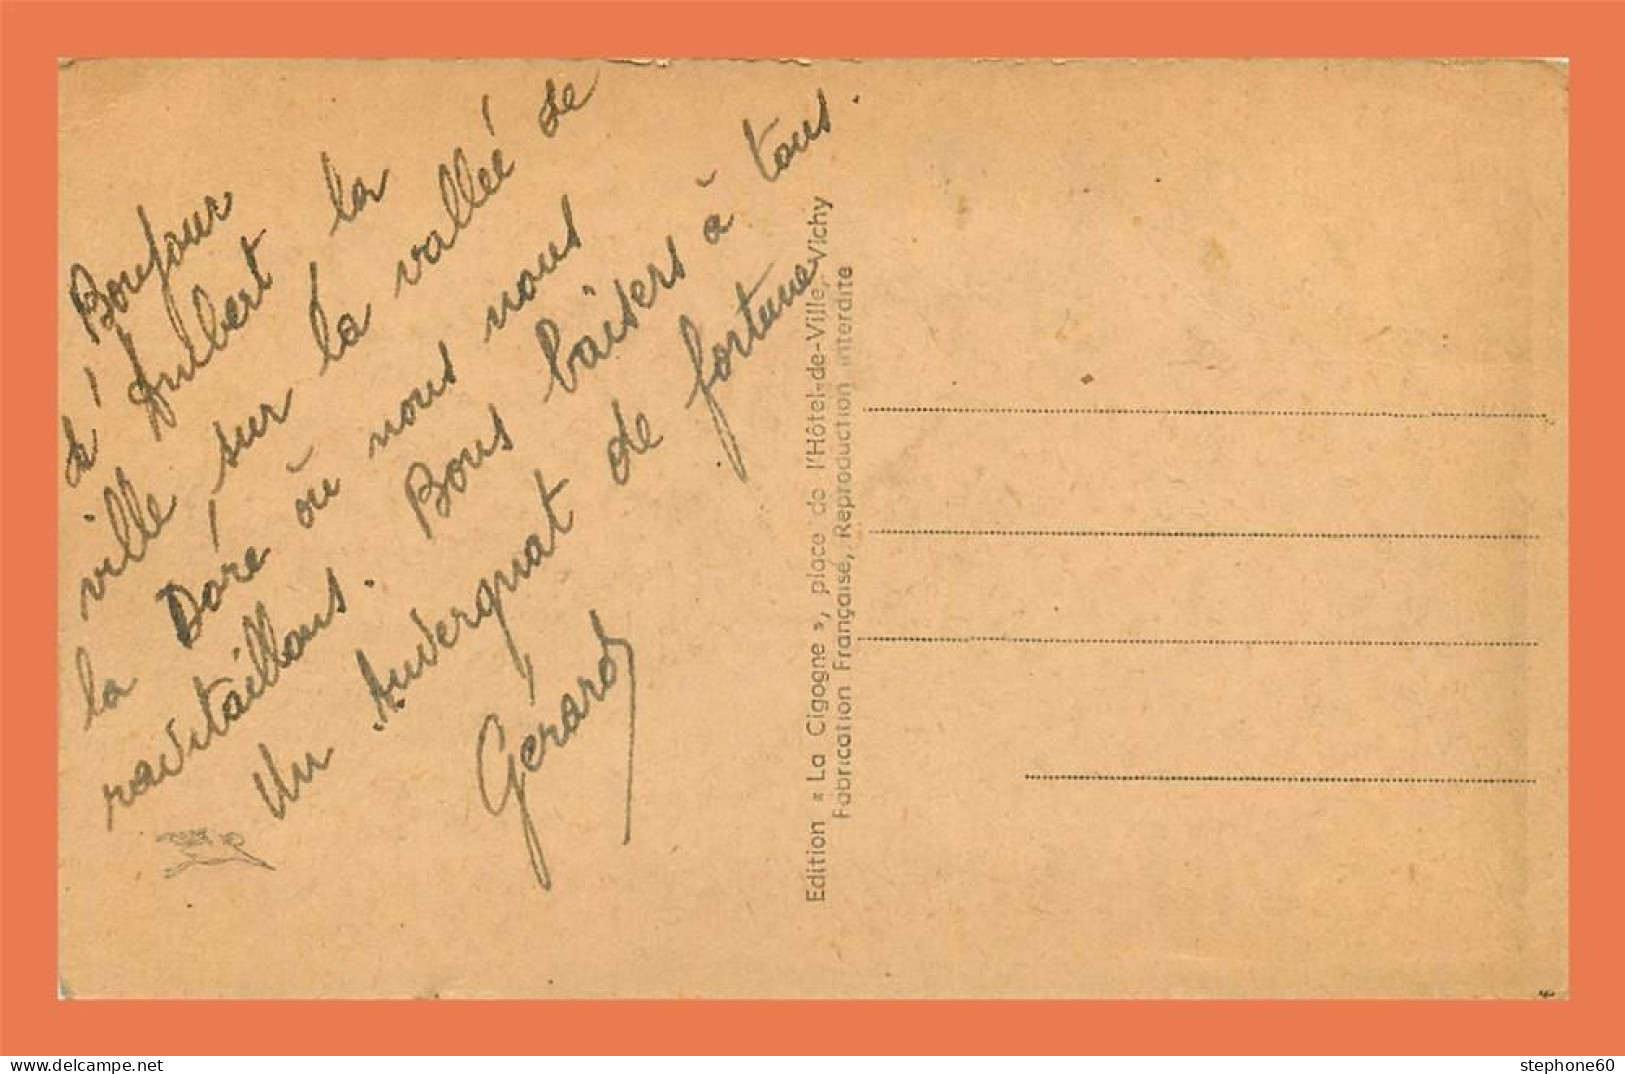 Bonjour
d'Ambert la
ville sur la vallée de
la Dore où nous nous
ravitaillons. Bons baisers à tous.
Un Auvergnat de fortune
Gérard
Edition « La Cigogne », place de l'Hôtel-de-Ville, Vichy
Fabrication Française, Reproduction interdite
stephone60